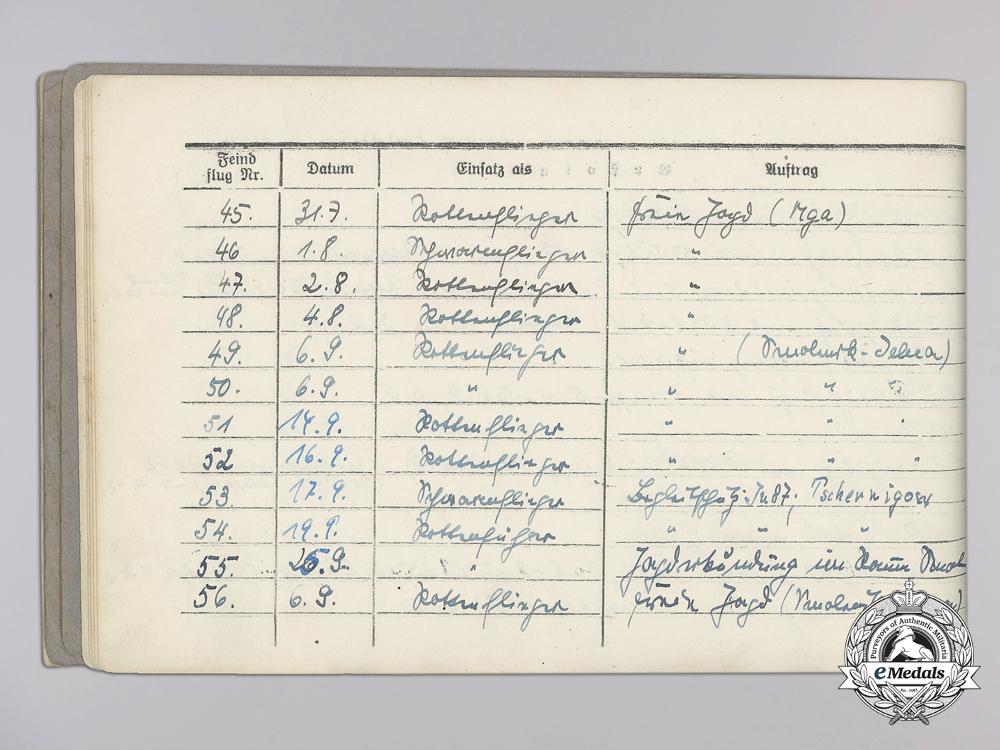 Feind
flug Nr. Datum Einsatz als Auftrag
45. 31.7. Rottenflieger freie Jagd (Mga)
46 1.8. Schwarmflieger "
47. 2.8. Rottenflieger "
48. 4.8. Rottenflieger "
49. 6.9. Rottenflieger " (
50. 6.9. " " " "
51 14.9. Rottenflieger " " "
52 16.9. Rottenflieger " " "
53. 17.9. Schwarmflieger Begleitschutz Ju 87, Tschernigow
54. 19.9. Rottenführer " " "
55. 9. " Jagderkundung im Raum
56. 6.9. Rottenflieger freie Jagd (
Purveyors of Authentic Militaria
eMedals